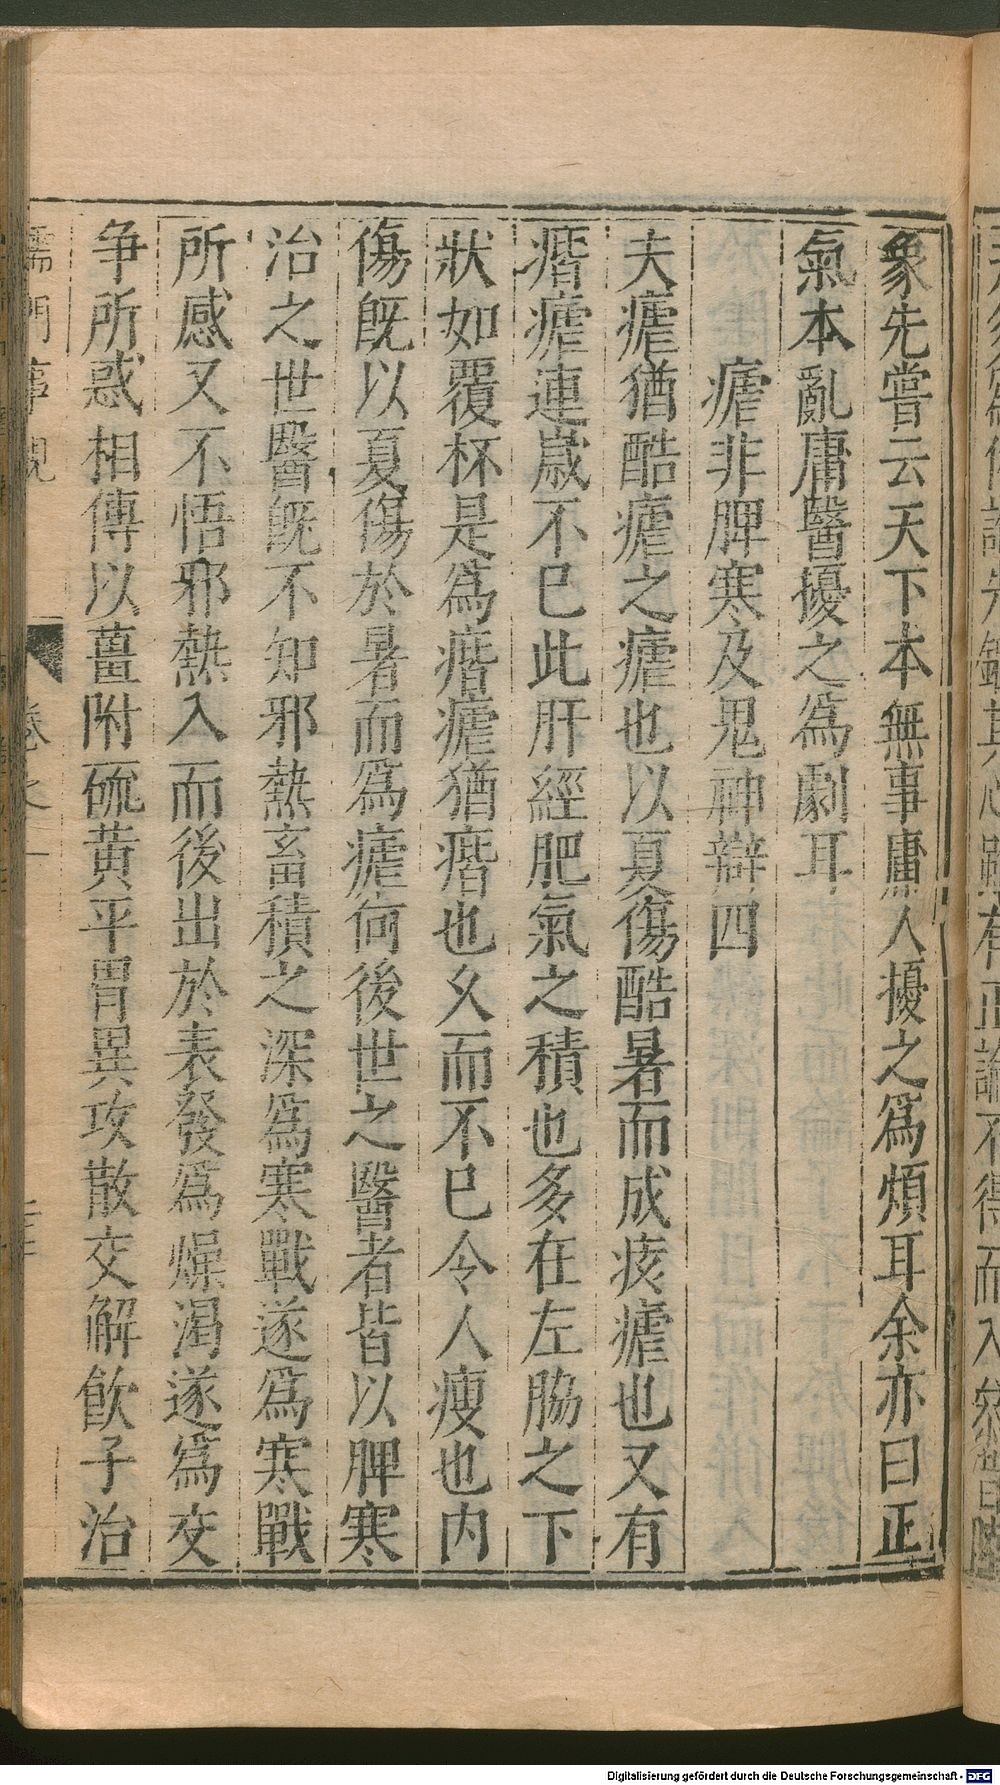 象先嘗云天下本無事庸人擾之爲煩耳余亦曰正
氣本亂庸醫擾之爲劇耳
瘧非脾寒及鬼神辯四
夫瘧猶酷瘧之瘧也以夏傷酷暑而成痎瘧也又有
㾬瘧連歲不已此肝經肥氣之積也多在左脇之下
狀如覆杯是爲㾬瘧猶㾬也久而不已令人瘦也内
傷既以夏傷於暑而爲瘧何後世之醫者皆以脾寒
治之世醫既不知邪熱畜積之深爲寒戰遂爲寒戰
所感又不悟邪熱入而後出於表發爲燥渴遂爲交
争所惑相傳以薑附硫黄平胃異攻散交解飲子治
儒門事親
卷之一
Digitalisierung gefördert durch die Deutsche Forschungsgemeinschaft - DFG